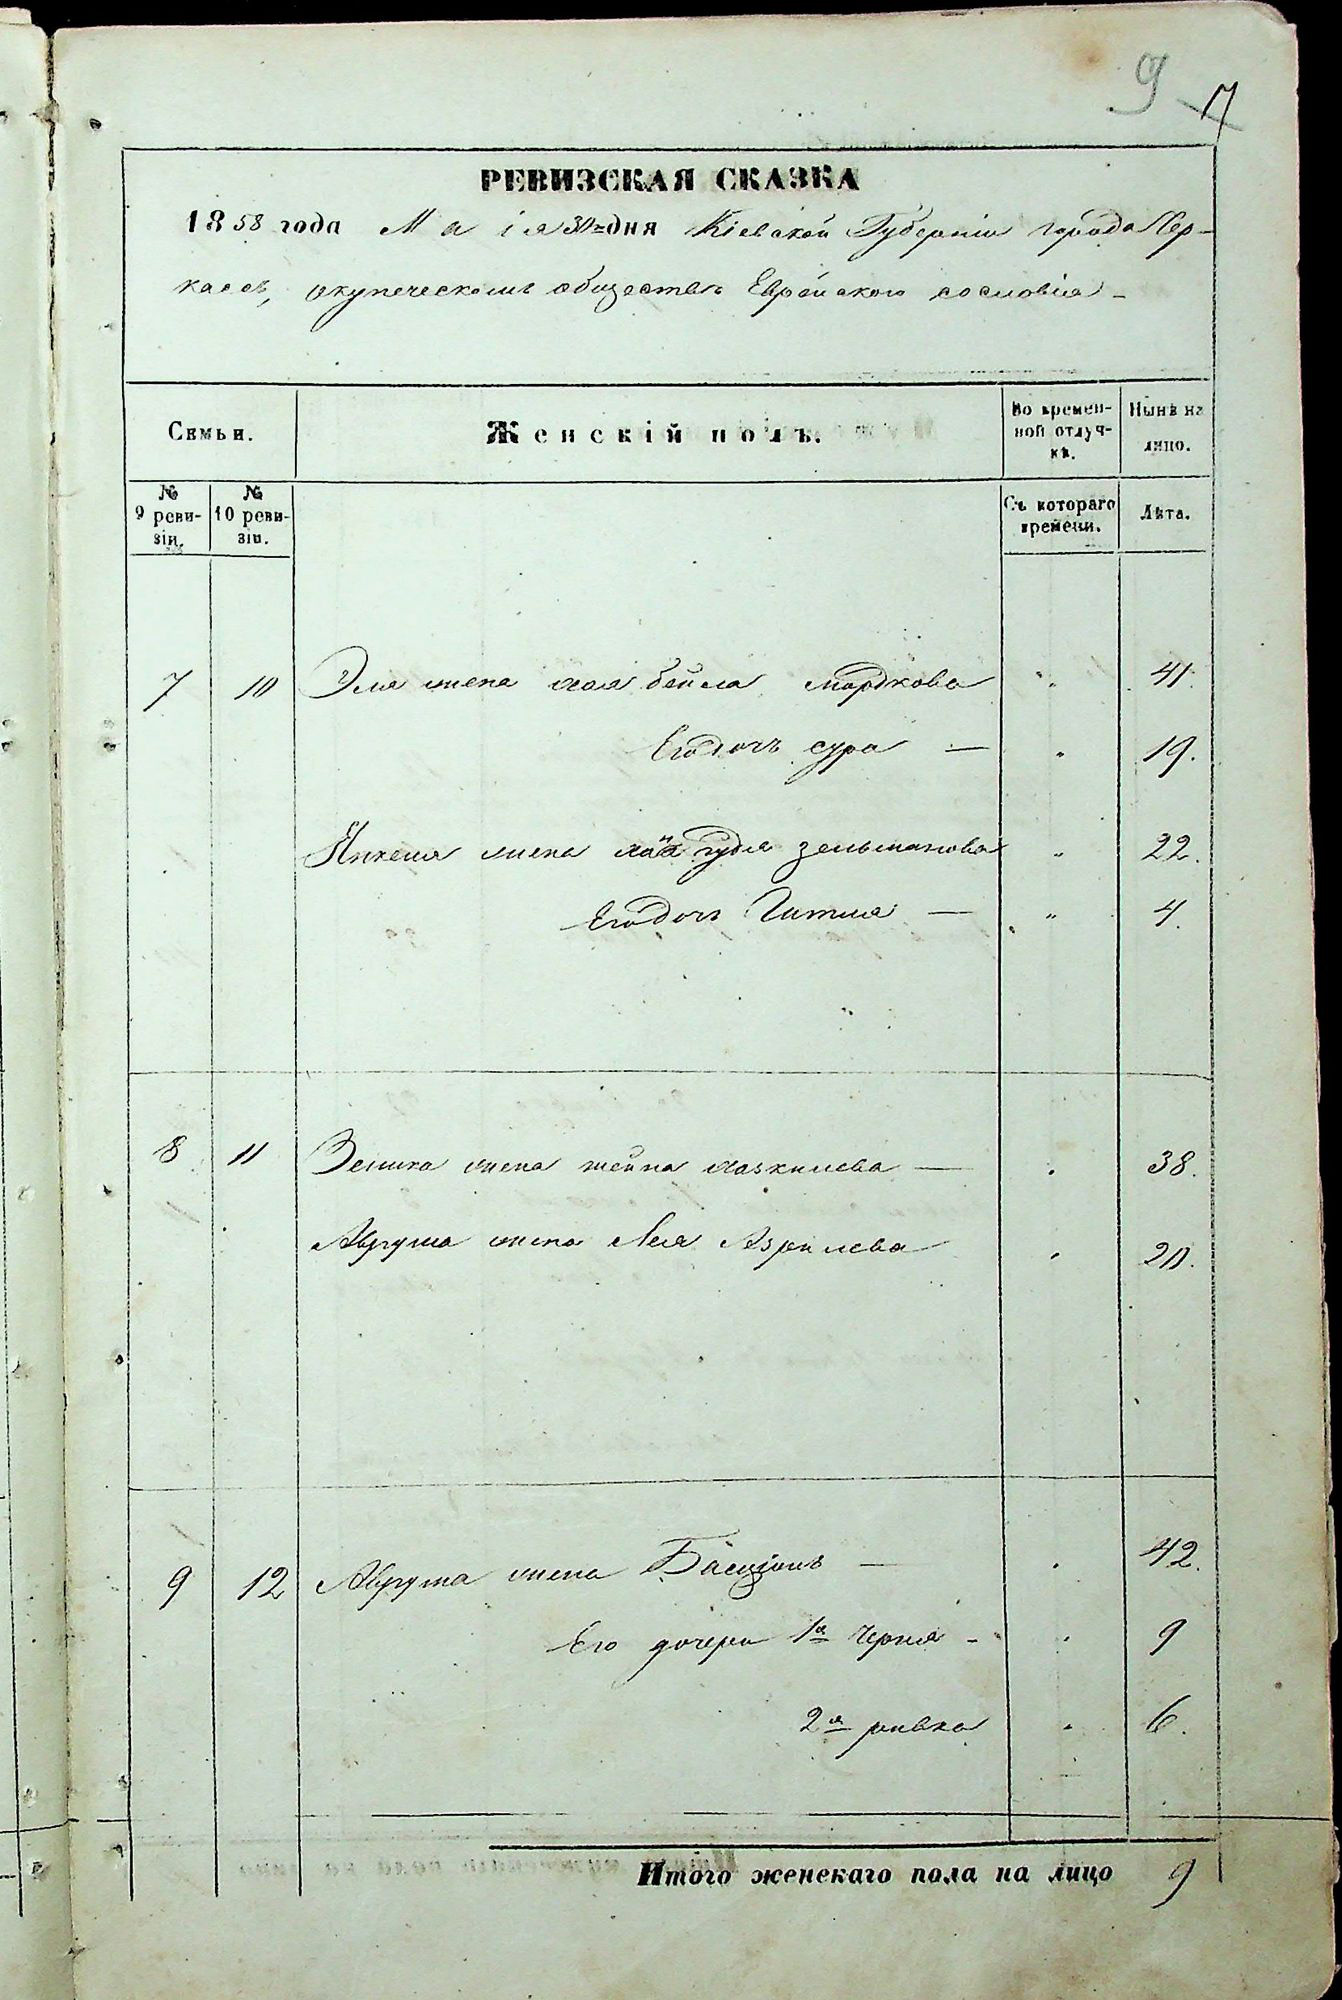 9 17
РЕВИЗСКАЯ СКАЗКА
1858 года Маія 30го дня Кіевской Губерніи города Чер-
касъ, окупеческомъ обществѣ Еврейского сословія -
Семьи. Женскій полъ. Во времен-ной отлуч-кѣ. Нынѣ на лицо.
№ 9 реви-зіи. № 10 реви-зіи. Съ котораго времени. Лѣта.
7 10 Эля жена хая бейла мордкова " 41.
Его дочь сура — " 19.
Янкеля жена хая гудя зельманова " 22.
Его дочь Гитля — " 4.
8 11 Зелика жена шейна хаскилева — " 38.
Аврума жена Лея Азрилева " 20.
9 12 Аврума жена Басціонъ — " 42.
Его дочери 1я Черня - " 9
2я ривка " 6.
Итого женскаго пола на лицо 9